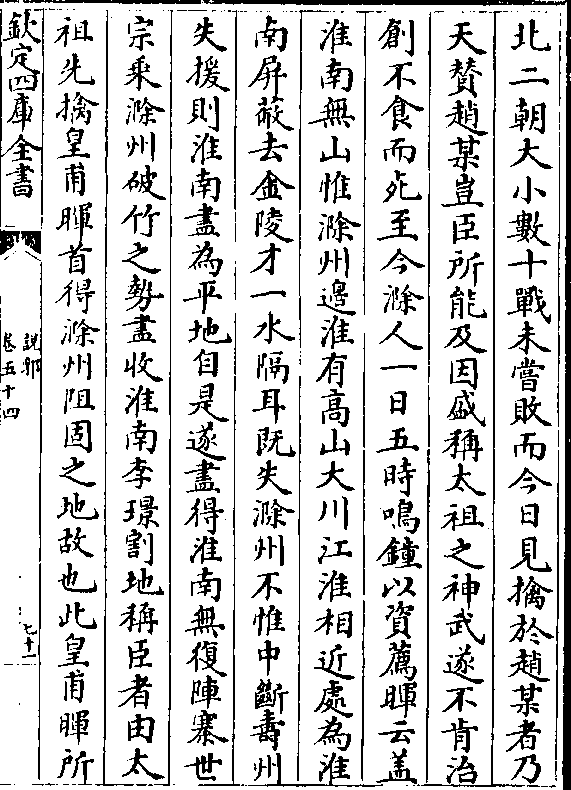 北二朝大小數十戰未嘗敗而今日見擒於趙某者乃
天賛趙某豈臣所能及因盛稱太祖之神武遂不肯治
創不食而死至今滁人一日五時鳴鐘以資薦暉云葢
淮南無山惟滁州邊淮有高山大川江淮相近處為淮
南屏蔽去金陵才一水隔耳既失滁州不惟中斷壽州
失援則淮南盡為平地自是遂盡得淮南無復障塞世
宗乘滁州破竹之勢盡收淮南李璟割地稱臣者由太
祖先擒皇甫暉首得滁州阻固之地故也此皇甫暉所
欽定四庫全書
說郛
卷五十四
七十一